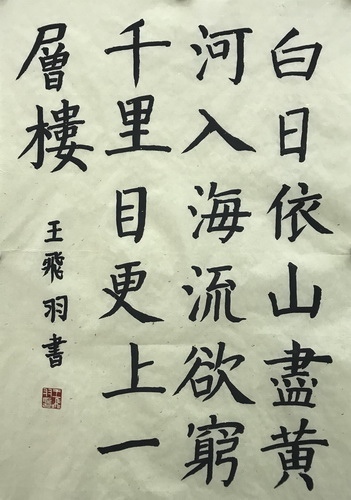 白日依山盡黄
河入海流欲窮
千里目更上一
層樓
王飛羽書